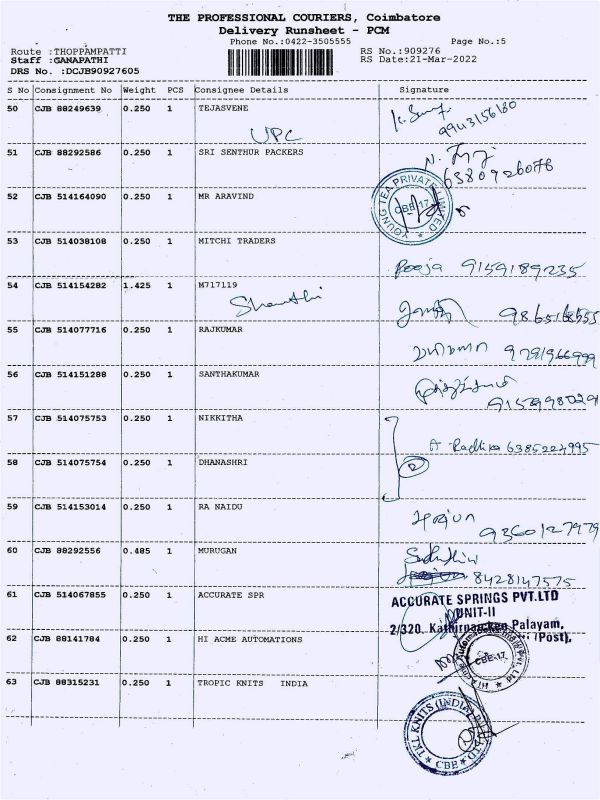 THE PROFESSIONAL COURIERS, Coimbatore
Delivery Runsheet - PCM
Phone No.:0422-3505555 Page No.:5
Route :THOPPAMPATTI RS No.:909276
Staff :GANAPATHI RS Date:21-Mar-2022
DRS No. :DCJB90927605
S No Consignment No Weight PCS Consignee Details Signature
50 CJB 88249639 0.250 1 TEJASVENE
UPC
51 CJB 88292586 0.250 1 SRI SENTHUR PACKERS
6380926078
52 CJB 514164090 0.250 1 MR ARAVIND
YOUNG TEA PRIVATE LIMITED
CBE-17
53 CJB 514038108 0.250 1 MITCHI TRADERS
Pooja 9159189235
54 CJB 514154282 1.425 1 M717119
Shanthi
55 CJB 514077716 0.250 1 RAJKUMAR
9791966999
56 CJB 514151288 0.250 1 SANTHAKUMAR
57 CJB 514075753 0.250 1 NIKKITHA
A Radhika 6385224995
58 CJB 514075754 0.250 1 DHANASHRI
2
59 CJB 514153014 0.250 1 RA NAIDU
9360127979
60 CJB 88292556 0.485 1 MURUGAN
8428147575
61 CJB 514067855 0.250 1 ACCURATE SPR
ACCURATE SPRINGS PVT.LTD
UNIT-II
2/320, Palayam,
(Post),
62 CJB 88141784 0.250 1 HI ACME AUTOMATIONS
CBE-17
63 CJB 88315231 0.250 1 TROPIC KNITS INDIA
TKL KNITS (INDIA)
CBE